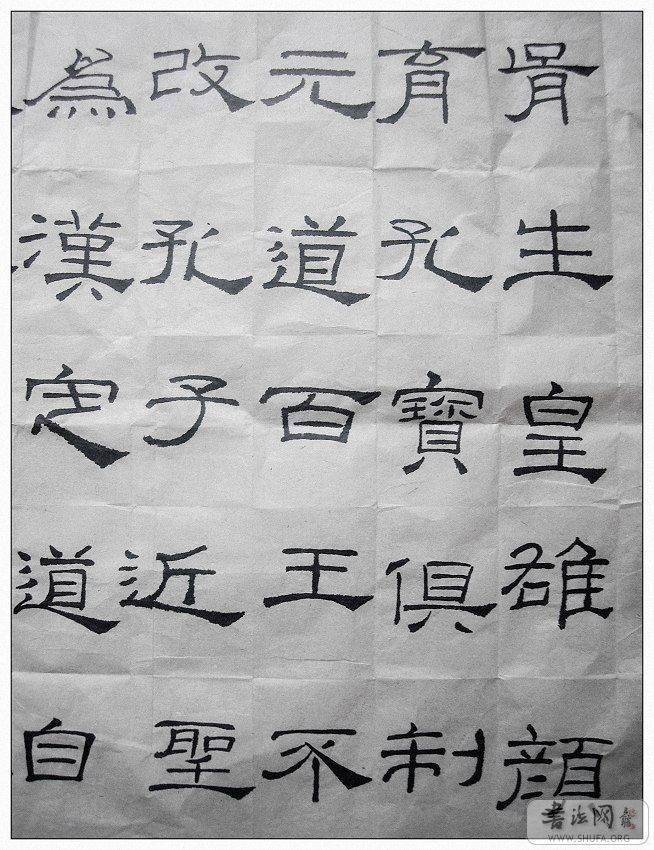 胥生皇雄顏
育孔寶俱制
元道百王不
改孔子近聖
為漢定道自
書法网
WWW.SHUFA.ORG